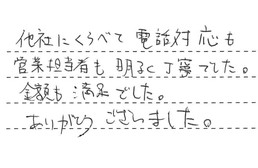 他社にくらべて 電話対応も
営業担当者も 明るく丁寧でした。
金額も 満足でした。
ありがとう ございました。